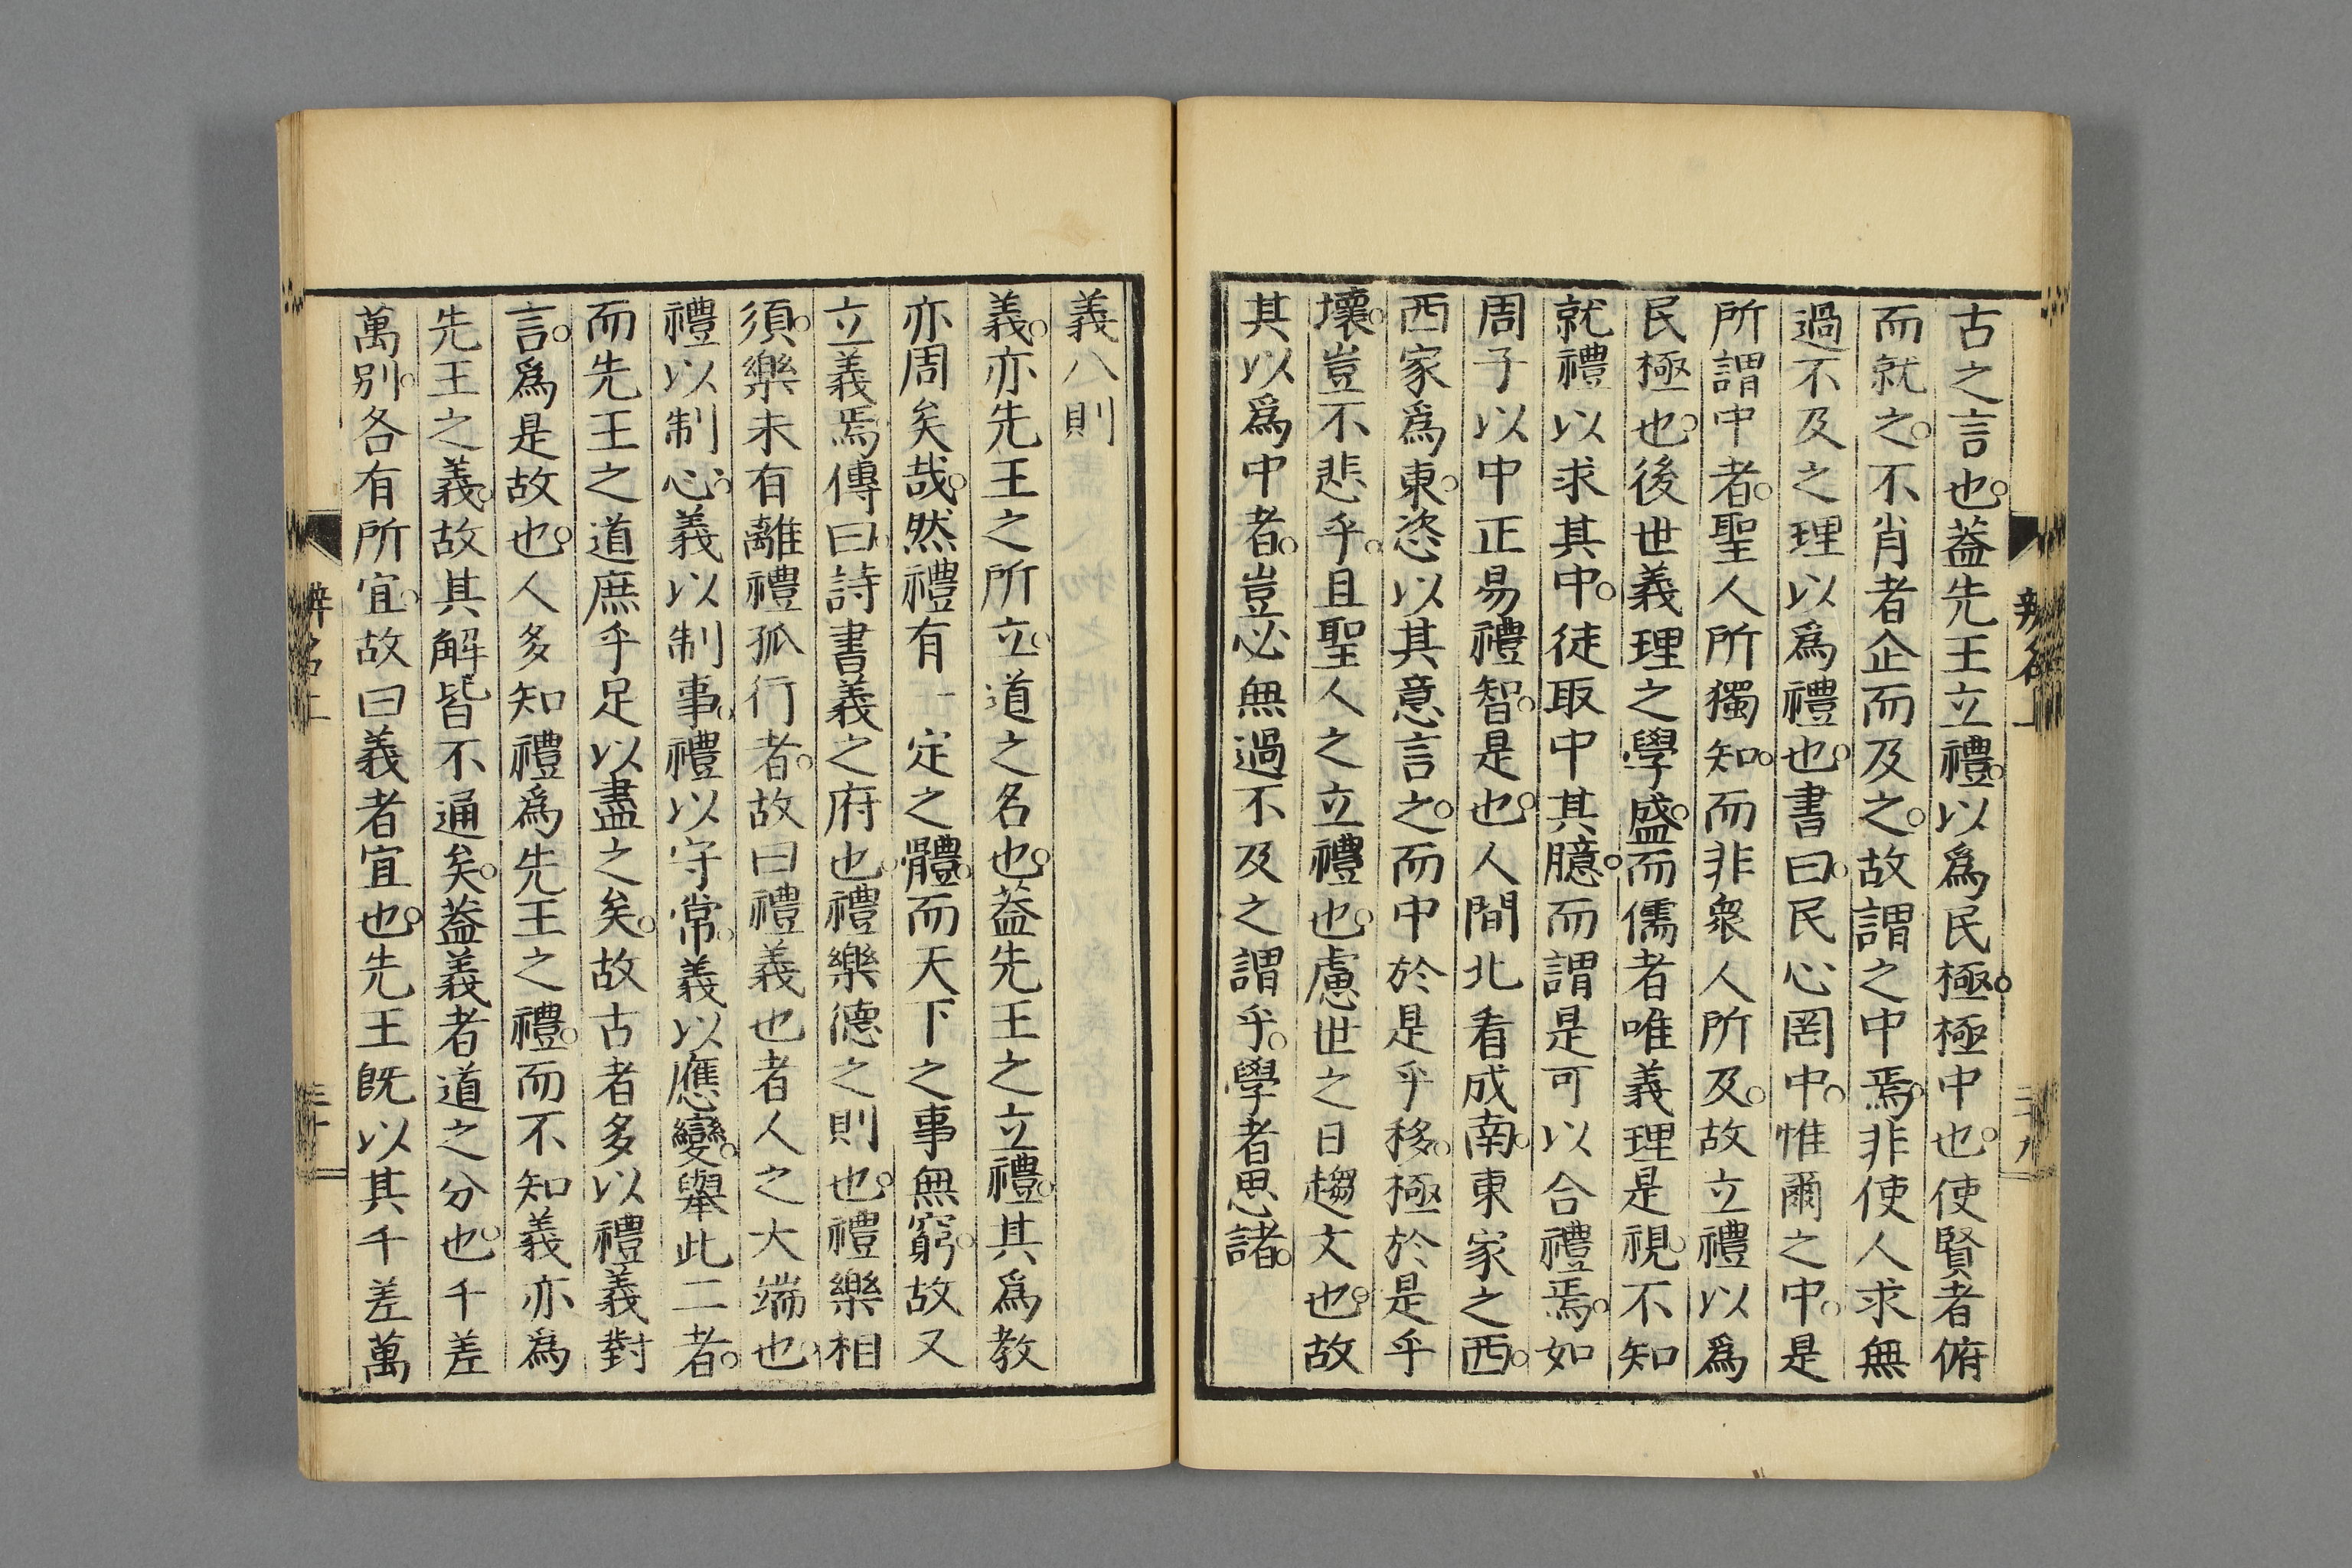 古之言也。蓋先王立禮。以爲民極。極中也。使賢者俯
而就之。不肖者企而及之。故謂之中焉。非使人求無
過不及之理以爲禮也。書曰。民心罔中。惟爾之中。是
所謂中者。聖人所獨知。而非衆人所及。故立禮以爲
民極也。後世義理之學盛。而儒者唯義理是視。不知
就禮以求其中。徒取中其臆。而謂是可以合禮焉。如
周子以中正易禮智。是也。人間北看成南。東家之西。
西家爲東。恣以其意言之。而中於是乎移。極於是乎
壞。豈不悲乎。且聖人之立禮也。慮世之日趨文也。故
其以爲中者。豈必無過不及之謂乎。學者思諸。
義八則
義。亦先王之所立。道之名也。蓋先王之立禮。其爲教
亦周矣哉。然禮有一定之體。而天下之事無窮。故又
立義焉。傳曰。詩書義之府也。禮樂德之則也。禮樂相
須。樂未有離禮孤行者。故曰禮義也者人之大端也。
禮以制心。義以制事。禮以守常。義以應變。舉此二者。
而先王之道庶乎足以盡之矣。故古者多以禮義對
言。爲是故也。人多知禮爲先王之禮。而不知義亦爲
先王之義。故其解皆不通矣。蓋義者道之分也。千差
萬別。各有所宜。故曰義者宜也。先王既以其千差萬
辨名上
三十